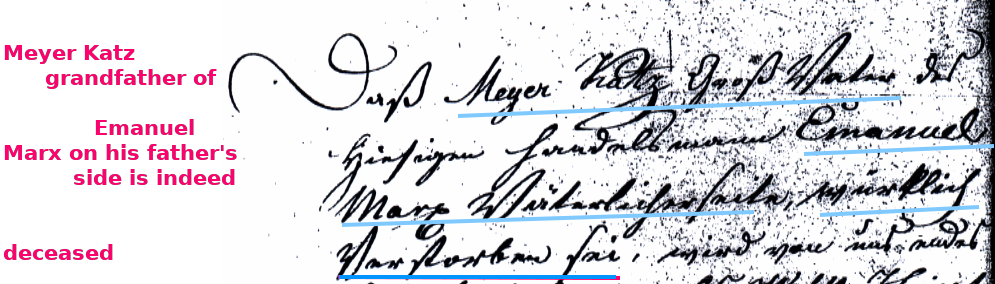 Meyer Katz
grandfather of
Emanuel
Marx on his father's
side is indeed
deceased
Daß Meyer Katz Groß Vater des
hiesigen Handelsmann Emanuel
Marx Väterlicherseite, würklich
Verstorben sei, wird von uns endes